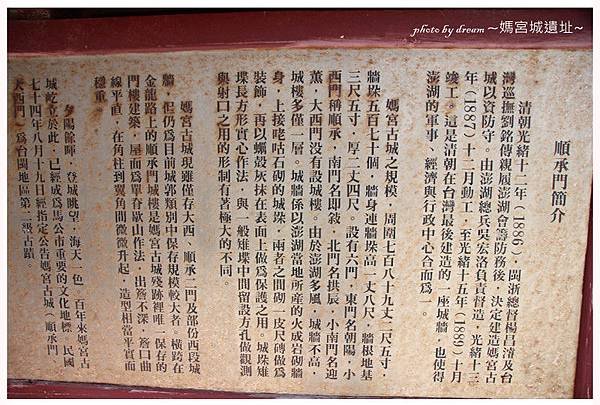 photo by dream ~媽宮城遺址~
順承門簡介
清朝光緒十二年（1886），閩浙總督楊昌濬及台
灣巡撫劉銘傳親履澎湖會籌防務後，決定建造媽宮古
城以資防守。由澎湖總兵吳宏洛負責督造，光緒十三
年（1887）十二月動工，至光緒十五年（1889）十月
竣工。這是清朝在台灣最後建造的一座城牆，也使得
澎湖的軍事、經濟與行政中心合而為一。
媽宮古城之規模，周圍七百八十九丈二尺五寸，
牆垛五百七十個，牆身連牆垛高一丈八尺，牆根地基
三尺五寸，厚二丈四尺。設有六門，東門名朝陽，小
西門稱順承，南門名即敍，北門名拱辰，小南門名迎
薰，大西門沒有設城樓。由於澎湖多風，城牆不高，
城樓多僅一層。城牆係以澎湖當地所產的火成岩砌牆
身，上接咾咕石砌的城垛，兩者之間砌一皮尺磚做為
裝飾，再以蠣殼灰抹在表面上做為保護之用。城垛雉
堞長方形實心作法，與一般雉堞中間留設方孔做觀測
與射口之用的形制有著極大的不同。
媽宮古城現雖僅存大西、順承二門及部份西段城
牆，但仍為目前城郭類別中保存規模較大者。橫跨在
金龍路上的順承門城樓是媽宮古城殘跡裡唯一保存的
門樓建築，屋面為單脊歇山作法，出簷不深，簷口曲
線平直，在角柱到翼角間微微升起，造型相當平實而
穩重。
夕陽餘暉，登城眺望，海天一色，百年來媽宮古
城屹立於此，已經成為馬公市重要的文化地標。民國
七十四年八月十九日經指定公告媽宮古城（順承門、
大西門）為台閩地區第二級古蹟。